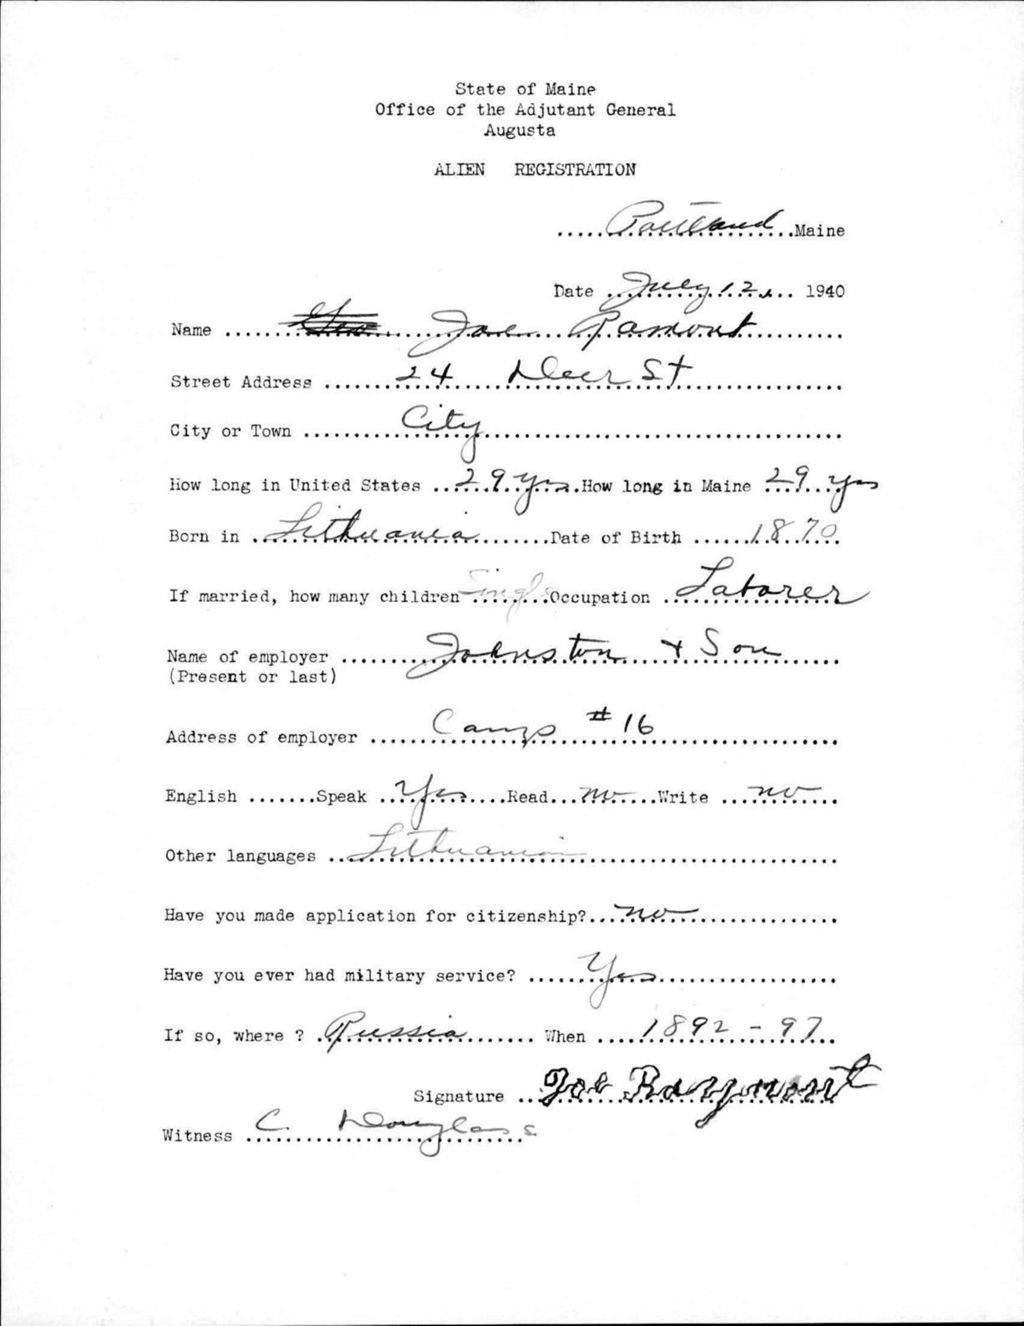 State of Maine
Office of the Adjutant General
Augusta
ALIEN REGISTRATION
.....Portland..Maine
Date ..July 12,.. 1940
Name ...... Geo ..... Joe ... Ramont ......
Street Address ....... 24 ..... Deer St ..........
City or Town .......... City ..........
How long in United States .. 29 yrs .How long in Maine 29 yrs
Born in . Lithuania .......Date of Birth ...... 1870.
If married, how many children Single ..Occupation . Laborer
Name of employer ........ Johnston & Son ......
(Present or last)
Address of employer ...... Camp # 16 ..........
English .......Speak .. Yes .....Read... no .....Write ... no ....
Other languages .. Lithuanian ..........
Have you made application for citizenship?... no ..........
Have you ever had military service? ...... Yes ..........
If so, where ? . Russia ....... When .... 1892 - 97 ...
Signature .. Joe Raymont
Witness C. Douglass